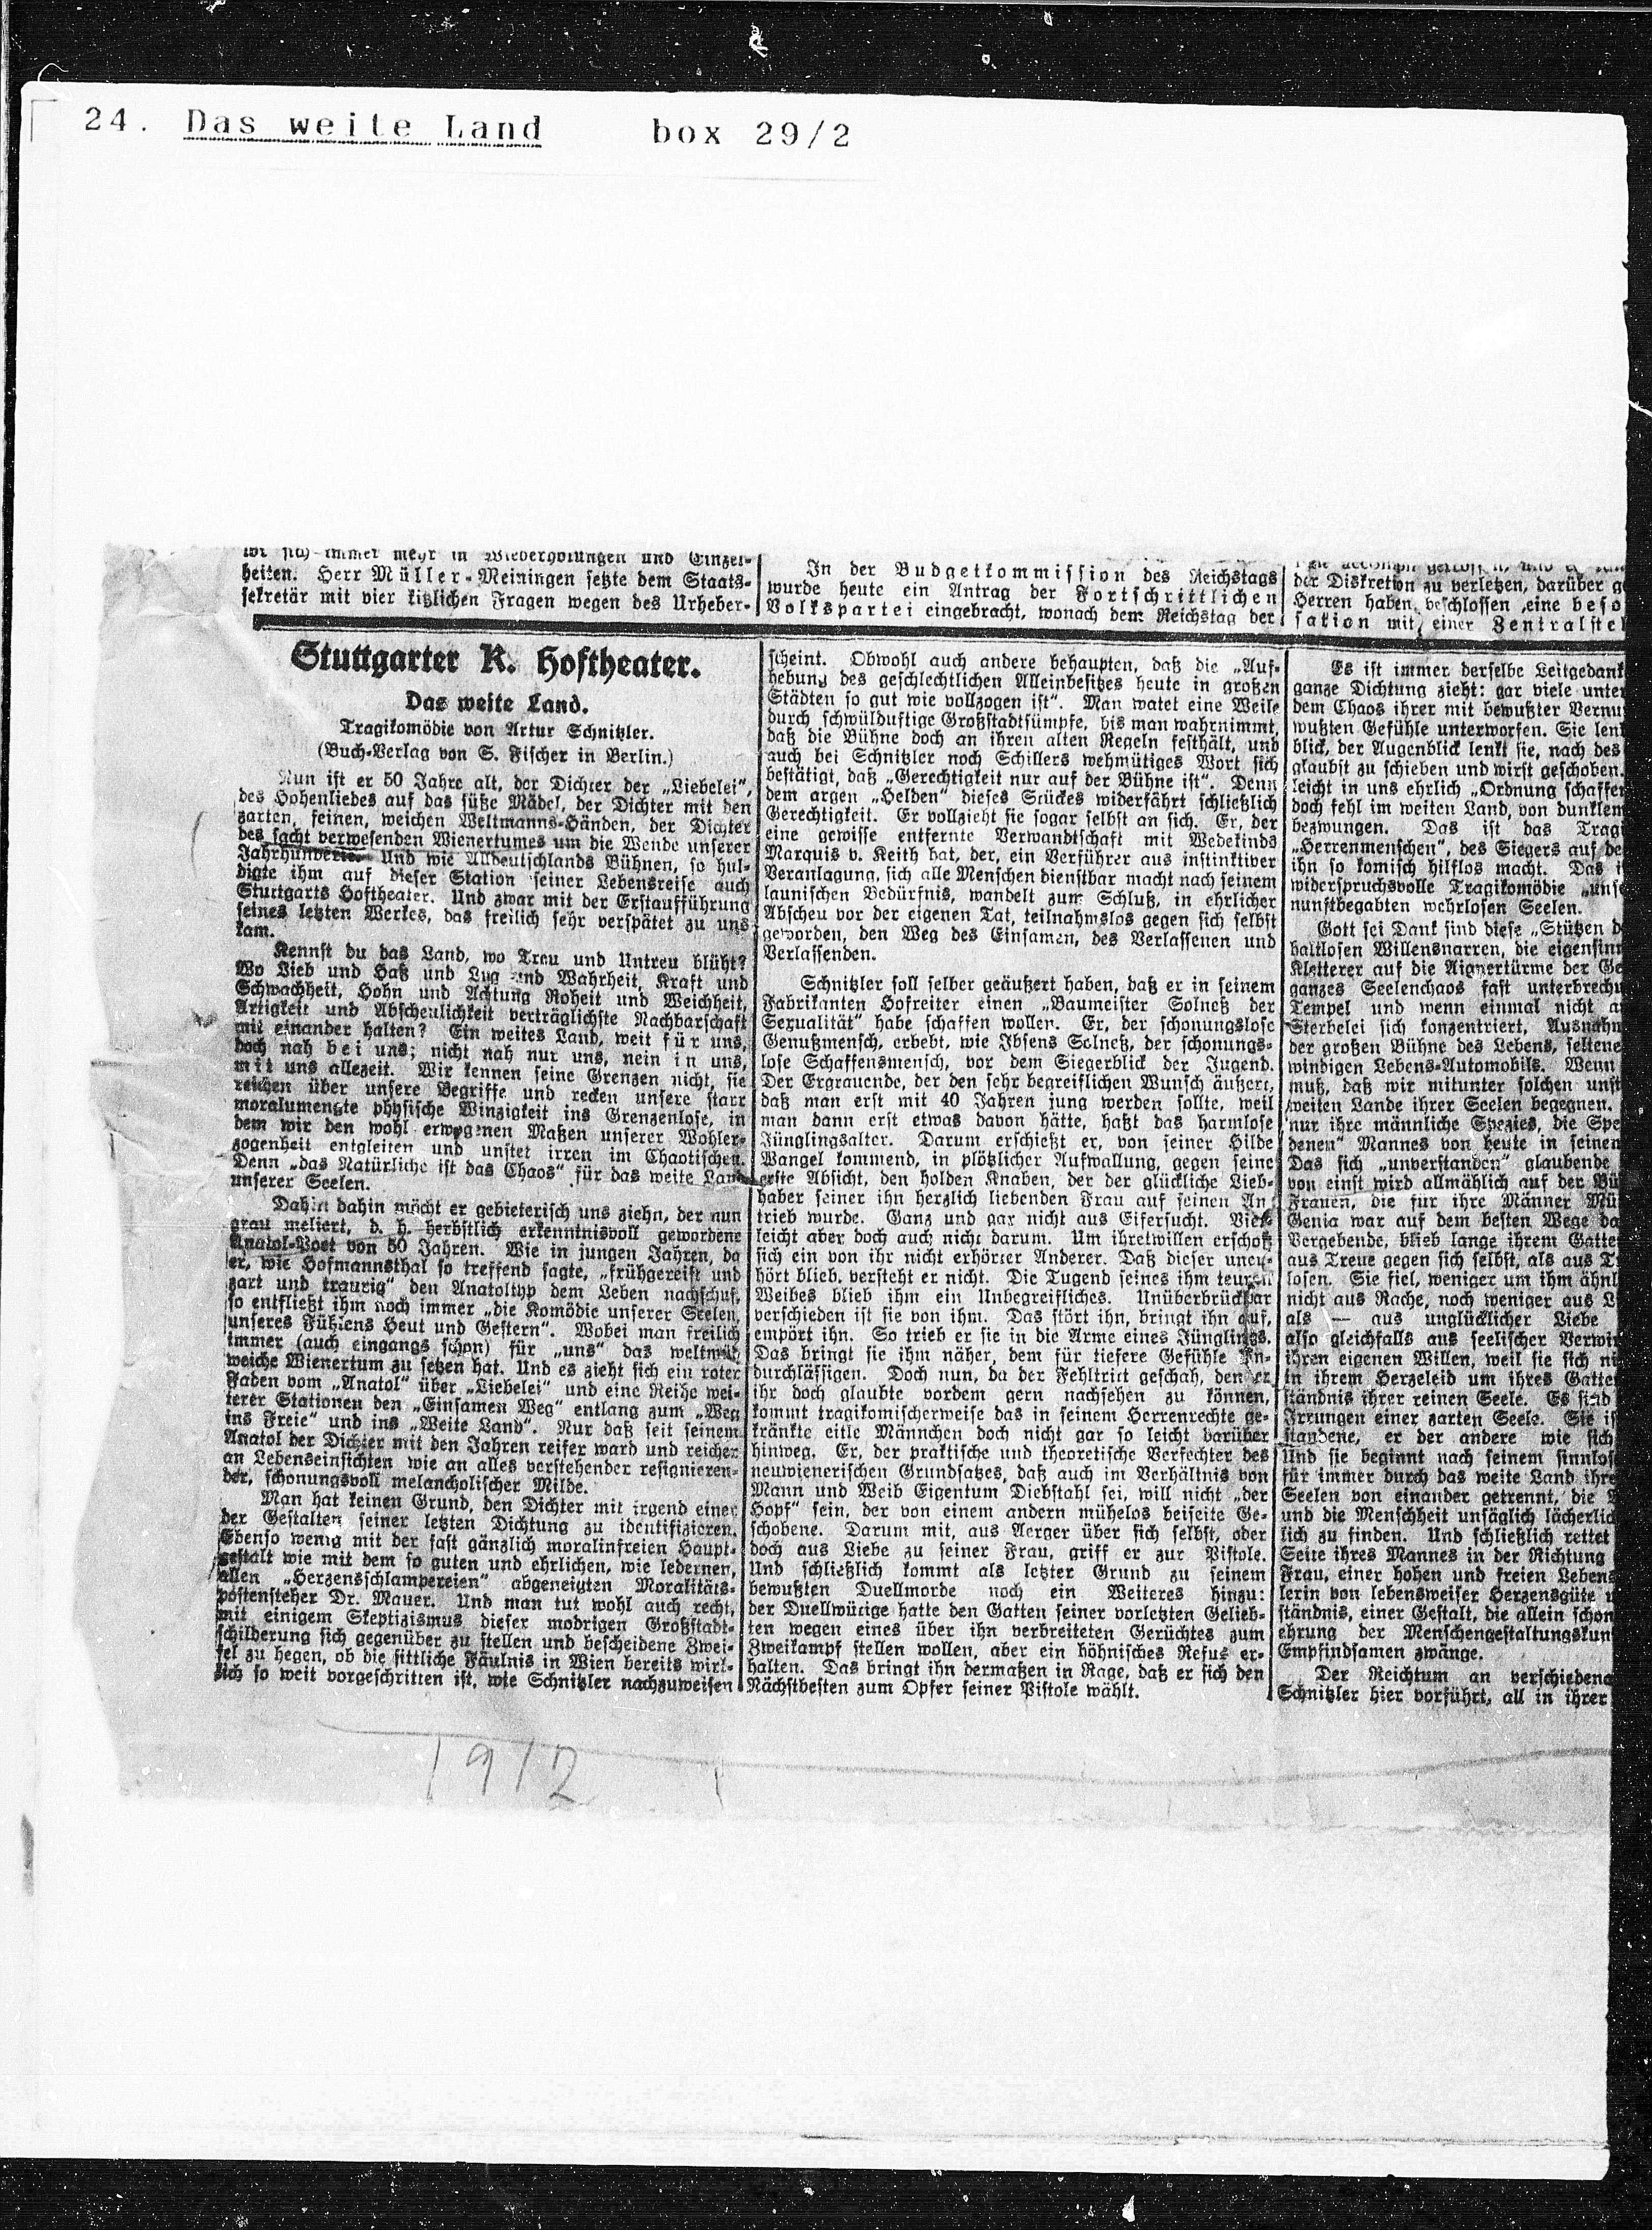 24. Das weite Land box 29/2
wi sich immer mehr in Wiederholungen und Einzel-
heiten. Herr Müller-Meiningen setzte dem Staats-
sekretär mit vier kitzlichen Fragen wegen des Urheber-
In der Budgetkommission des Reichstags
wurde heute ein Antrag der Fortschrittlichen
Volkspartei eingebracht, wonach dem Reichstag der
der Diskretion zu verletzen, darüber g
Herren haben beschlossen, eine beso
sation mit einer Zentralstel
Stuttgarter K. Hoftheater.
Das weite Land.
Tragikomödie von Artur Schnitzler.
(Buch-Verlag von S. Fischer in Berlin.)
Nun ist er 50 Jahre alt, der Dichter der „Liebelei“,
des Hohenliedes auf das süße Mädel, der Dichter mit den
zarten, feinen, weichen Weltmanns-Händen, der Dichter
des sacht verwesenden Wienertumes um die Wende unserer
Jahrhunderte. Und wie Alldeutschlands Bühnen, so hul-
digte ihm auf dieser Station seiner Lebensreise auch
Stuttgarts Hoftheater. Und zwar mit der Erstaufführung
seines letzten Werkes, das freilich sehr verspätet zu uns
kam.
Kennst du das Land, wo Treu und Untreu blüht?
Wo Lieb und Haß und Lug und Wahrheit, Kraft und
Schwachheit, Hohn und Achtung Roheit und Weichheit,
Artigkeit und Abscheulichkeit verträglichste Nachbarschaft
mit einander halten? Ein weites Land, weit für uns,
doch nah bei uns; nicht nah nur uns, nein in uns,
mit uns allezeit. Wir kennen seine Grenzen nicht, sie
reichen über unsere Begriffe und recken unsere starr
moralumengte physische Winzigkeit ins Grenzenlose, in
dem wir den wohl erwogenen Maßen unserer Wohler-
zogenheit entgleiten und unstet irren im Chaotischen.
Denn „das Natürliche ist das Chaos“ für das weite Land
unserer Seelen.
Dahin dahin möcht er gebieterisch uns ziehn, der nun
grau meliert, d. h. herbstlich erkenntnisvoll gewordene
Anatol-Poet von 50 Jahren. Wie in jungen Jahren, da
er, wie Hofmannsthal so treffend sagte, „frühgereift und
zart und traurig“ den Anatoltyp dem Leben nachschuf,
so entfließt ihm noch immer „die Komödie unserer Seelen,
unseres Fühlens Heut und Gestern“. Wobei man freilich
immer (auch eingangs schon) für „uns“ das weltmüd
weiche Wienertum zu setzen hat. Und es zieht sich ein roter
Faden vom „Anatol“ über „Liebelei“ und eine Reihe wei-
terer Stationen den „Einsamen Weg“ entlang zum „Weg
ins Freie“ und ins „Weite Land“. Nur daß seit seinem
Anatol der Dichter mit den Jahren reifer ward und reicher
an Lebenseinsichten wie an alles verstehender resignieren-
der, schonungsvoll melancholischer Milde.
Man hat keinen Grund, den Dichter mit irgend einer
der Gestalten seiner letzten Dichtung zu identifizieren.
Ebenso wenig mit der fast gänzlich moralinfreien Haupt-
gestalt wie mit dem so guten und ehrlichen, wie ledernen,
allen „Herzensschlampereien“ abgeneigten Moralitäts-
postensteher Dr. Mauer. Und man tut wohl auch recht,
mit einigem Skeptizismus dieser modrigen Großstadt-
schilderung sich gegenüber zu stellen und bescheidene Zwei-
fel zu hegen, ob die sittliche Fäulnis in Wien bereits wirk-
lich so weit vorgeschritten ist, wie Schnitzler nachzuweisen
scheint. Obwohl auch andere behaupten, daß die „Auf-
hebung des geschlechtlichen Alleinbesitzes heute in großen
Städten so gut wie vollzogen ist“. Man watet eine Weile
durch schwülduftige Großstadtsümpfe, bis man wahrnimmt,
daß die Bühne doch an ihren alten Regeln festhält, und
auch bei Schnitzler noch Schillers wehmütiges Wort sich
bestätigt, daß „Gerechtigkeit nur auf der Bühne ist“. Denn
dem argen „Helden“ dieses Stückes widerfährt schließlich
Gerechtigkeit. Er vollzieht sie sogar selbst an sich. Er, der
eine gewisse entfernte Verwandtschaft mit Wedekinds
Marquis v. Keith hat, der, ein Verführer aus instinktiver
Veranlagung, sich alle Menschen dienstbar macht nach seinem
launischen Bedürfnis, wandelt zum Schluß, in ehrlicher
Abscheu vor der eigenen Tat, teilnahmslos gegen sich selbst
geworden, den Weg des Einsamen, des Verlassenen und
Verlassenden.
Schnitzler soll selber geäußert haben, daß er in seinem
Fabrikanten Hofreiter einen „Baumeister Solneß der
Sexualität“ habe schaffen wollen. Er, der schonungslose
Genußmensch, erbebt, wie Ibsens Solneß, der schonungs-
lose Schaffensmensch, vor dem Siegerblick der Jugend.
Der Ergrauende, der den sehr begreiflichen Wunsch äußert,
daß man erst mit 40 Jahren jung werden sollte, weil
man dann erst etwas davon hätte, haßt das harmlose
Jünglingsalter. Darum erschießt er, von seiner Hilde
Wangel kommend, in plötzlicher Aufwallung, gegen seine
erste Absicht, den holden Knaben, der der glückliche Lieb-
haber seiner ihn herzlich liebenden Frau auf seinen An
trieb wurde. Ganz und gar nicht aus Eifersucht. Viel-
leicht aber doch auch nicht darum. Um ihretwillen erschoß
sich ein von ihr nicht erhörter Anderer. Daß dieser uner-
hört blieb, versteht er nicht. Die Tugend seines ihm teuren
Weibes blieb ihm ein Unbegreifliches. Unüberbrückbar
verschieden ist sie von ihm. Das stört ihn, bringt ihn auf,
empört ihn. So trieb er sie in die Arme eines Jünglings.
Das bringt sie ihm näher, dem für tiefere Gefühle Un-
durchlässigen. Doch nun, da der Fehltritt geschah, den er
ihr doch glaubte vordem gern nachsehen zu können,
kommt tragikomischerweise das in seinem Herrenrechte ge-
kränkte eitle Männchen doch nicht gar so leicht darüber
hinweg. Er, der praktische und theoretische Verfechter des
neuwienerischen Grundsatzes, daß auch im Verhältnis von
Mann und Weib Eigentum Diebstahl sei, will nicht „der
Hopf“ sein, der von einem andern mühelos beiseite Ge-
schobene. Darum mit, aus Aerger über sich selbst, oder
doch aus Liebe zu seiner Frau, griff er zur Pistole.
Und schließlich kommt als letzter Grund zu seinem
bewußten Duellmorde noch ein Weiteres hinzu:
der Duellwütige hatte den Gatten seiner vorletzten Gelieb-
ten wegen eines über ihn verbreiteten Gerüchtes zum
Zweikampf stellen wollen, aber ein höhnisches Refus er-
halten. Das bringt ihn dermaßen in Rage, daß er sich den
Nächstbesten zum Opfer seiner Pistole wählt.
Es ist immer derselbe Leitgedank
ganze Dichtung zieht: gar viele unter
dem Chaos ihrer mit bewußter Vernu
wußten Gefühle unterworfen. Sie lenk
blick, der Augenblick lenkt sie, nach des
glaubst zu schieben und wirst geschoben.
leicht in uns ehrlich „Ordnung schaffen
doch fehl im weiten Land, von dunklem
bezwungen. Das ist das Tragi
„Herrenmenschen“, des Siegers auf de
ihn so komisch hilflos macht. Das i
widerspruchsvolle Tragikomödie „unse
nunftbegabten wehrlosen Seelen.
Gott sei Dank sind diese „Stützen d
haltlosen Willensnarren, die eigensinn
Kletterer auf die Aignertürme der Ge
ganzes Seelenchaos fast unterbrechu
Tempel und wenn einmal nicht a
Sterbelei sich konzentriert, Ausnahm
der großen Bühne des Lebens, seltene
windigen Lebens-Automobils. Wenn
muß, daß wir mitunter solchen unst
weiten Lande ihrer Seelen begegnen.
nur ihre männliche Spezies, die Spe
denen“ Mannes von heute in seinen
Das sich „unverstanden“ glaubende
von einst wird allmählich auf der Bü
Frauen, die für ihre Männer Mü
Genia war auf dem besten Wege da
Vergebende, blieb lange ihrem Gatte
aus Treue gegen sich selbst, als aus T
losen. Sie fiel, weniger um ihm ähnl
nicht aus Rache, noch weniger aus L
als — aus unglücklicher Liebe
also gleichfalls aus seelischer Verwir
ihren eigenen Willen, weil sie sich ni
in ihrem Herzeleid um ihres Gatte
ständnis ihrer reinen Seele. Es sind
Irrungen einer zarten Seele. Sie is
standene, er der andere wie sich
Und sie beginnt nach seinem sinnlos
für immer durch das weite Land ihre
Seelen von einander getrennt, die
und die Menschheit unsäglich lächerlic
lich zu finden. Und schließlich rettet
Seite ihres Mannes in der Richtung
Frau, einer hohen und freien Lebens
lerin von lebensweiser Herzensgüte u
ständnis, einer Gestalt, die allein schon
ehrung der Menschengestaltungskun
Empfindsamen zwänge.
Der Reichtum an verschiedene
Schnitzler hier vorführt, all in ihrer
1912